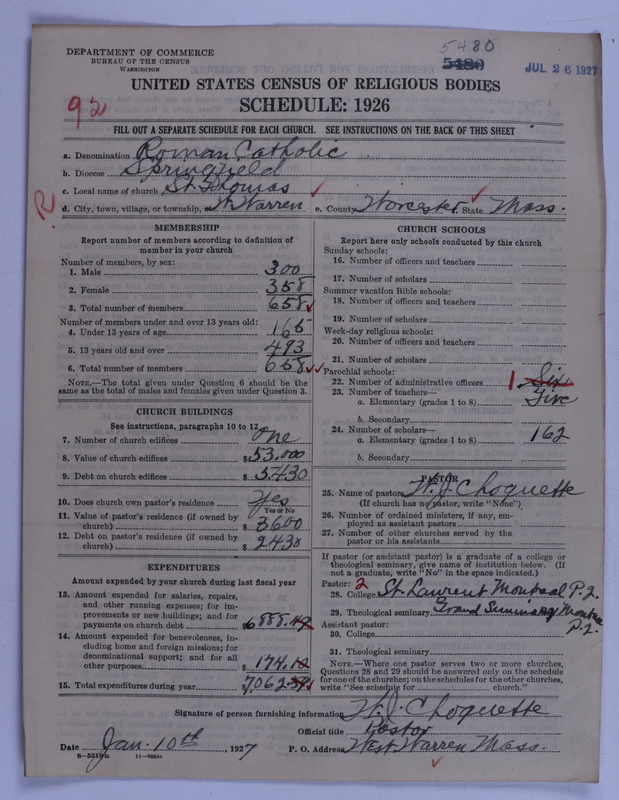 DEPARTMENT OF COMMERCE
BUREAU OF THE CENSUS
WASHINGTON
5480
5480
JUL 26 1927
UNITED STATES CENSUS OF RELIGIOUS BODIES
SCHEDULE: 1926
92
FILL OUT A SEPARATE SCHEDULE FOR EACH CHURCH. SEE INSTRUCTIONS ON THE BACK OF THIS SHEET
a. Denomination Roman Catholic
b. Diocese Springfield
c. Local name of church St. Thomas
R
d. City, town, village, or township, or W. Warren e. County Worcester f. State Mass.
MEMBERSHIP
Report number of members according to definition of
member in your church
Number of members, by sex:
1. Male 300
2. Female 358
3. Total number of members 658
Number of members under and over 13 years old:
4. Under 13 years of age 165
5. 13 years old and over 493
6. Total number of members 658
NOTE.—The total given under Question 6 should be the
same as the total of males and females given under Question 3.
CHURCH BUILDINGS
See instructions, paragraphs 10 to 12
7. Number of church edifices One
8. Value of church edifices $53,000
9. Debt on church edifices $ 5430
10. Does church own pastor's residence Yes
Yes or No
11. Value of pastor's residence (if owned by
church) $ 3600
12. Debt on pastor's residence (if owned by
church) $ 2430
EXPENDITURES
Amount expended by your church during last fiscal year
13. Amount expended for salaries, repairs,
and other running expenses; for im-
provements or new buildings; and for
payments on church debt $6888.42
14. Amount expended for benevolences, in-
cluding home and foreign missions; for
denominational support; and for all
other purposes $ 174.12
15. Total expenditures during year $7,062.54
CHURCH SCHOOLS
Report here only schools conducted by this church
Sunday schools:
16. Number of officers and teachers
17. Number of scholars
Summer vacation Bible schools:
18. Number of officers and teachers
19. Number of scholars
Week-day religious schools:
20. Number of officers and teachers
21. Number of scholars
Parochial schools:
22. Number of administrative officers 1. Six
23. Number of teachers—
a. Elementary (grades 1 to 8) Five
b. Secondary
24. Number of scholars—
a. Elementary (grades 1 to 8) 162
b. Secondary
PASTOR
25. Name of pastor W. J. Choquette
(If church has no pastor, write "None")
26. Number of ordained ministers, if any, em-
ployed as assistant pastors
27. Number of other churches served by the
pastor or his assistants
If pastor (or assistant pastor) is a graduate of a college or
theological seminary, give name of institution below. (If
not a graduate, write "No" in the space indicated.)
Pastor: 2
28. College St. Laurent Montreal P.2.
29. Theological seminary Grand Seminary Montrea
P.2.
Assistant pastor:
30. College
31. Theological seminary
NOTE.—Where one pastor serves two or more churches,
Questions 28 and 29 should be answered only on the schedule
for one of the churches; on the schedules for the other churches,
write "See schedule for church."
Signature of person furnishing information W. J. Choquette
Official title Pastor
Date Jan. 10th, 1927 P. O. Address West Warren Mass.